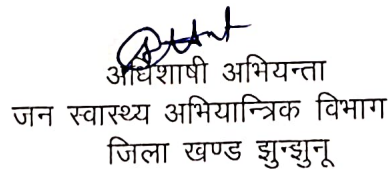 अधिशाषी अभियन्ता
जन स्वास्थ्य अभियान्त्रिक विभाग
जिला खण्ड झुन्झुनू